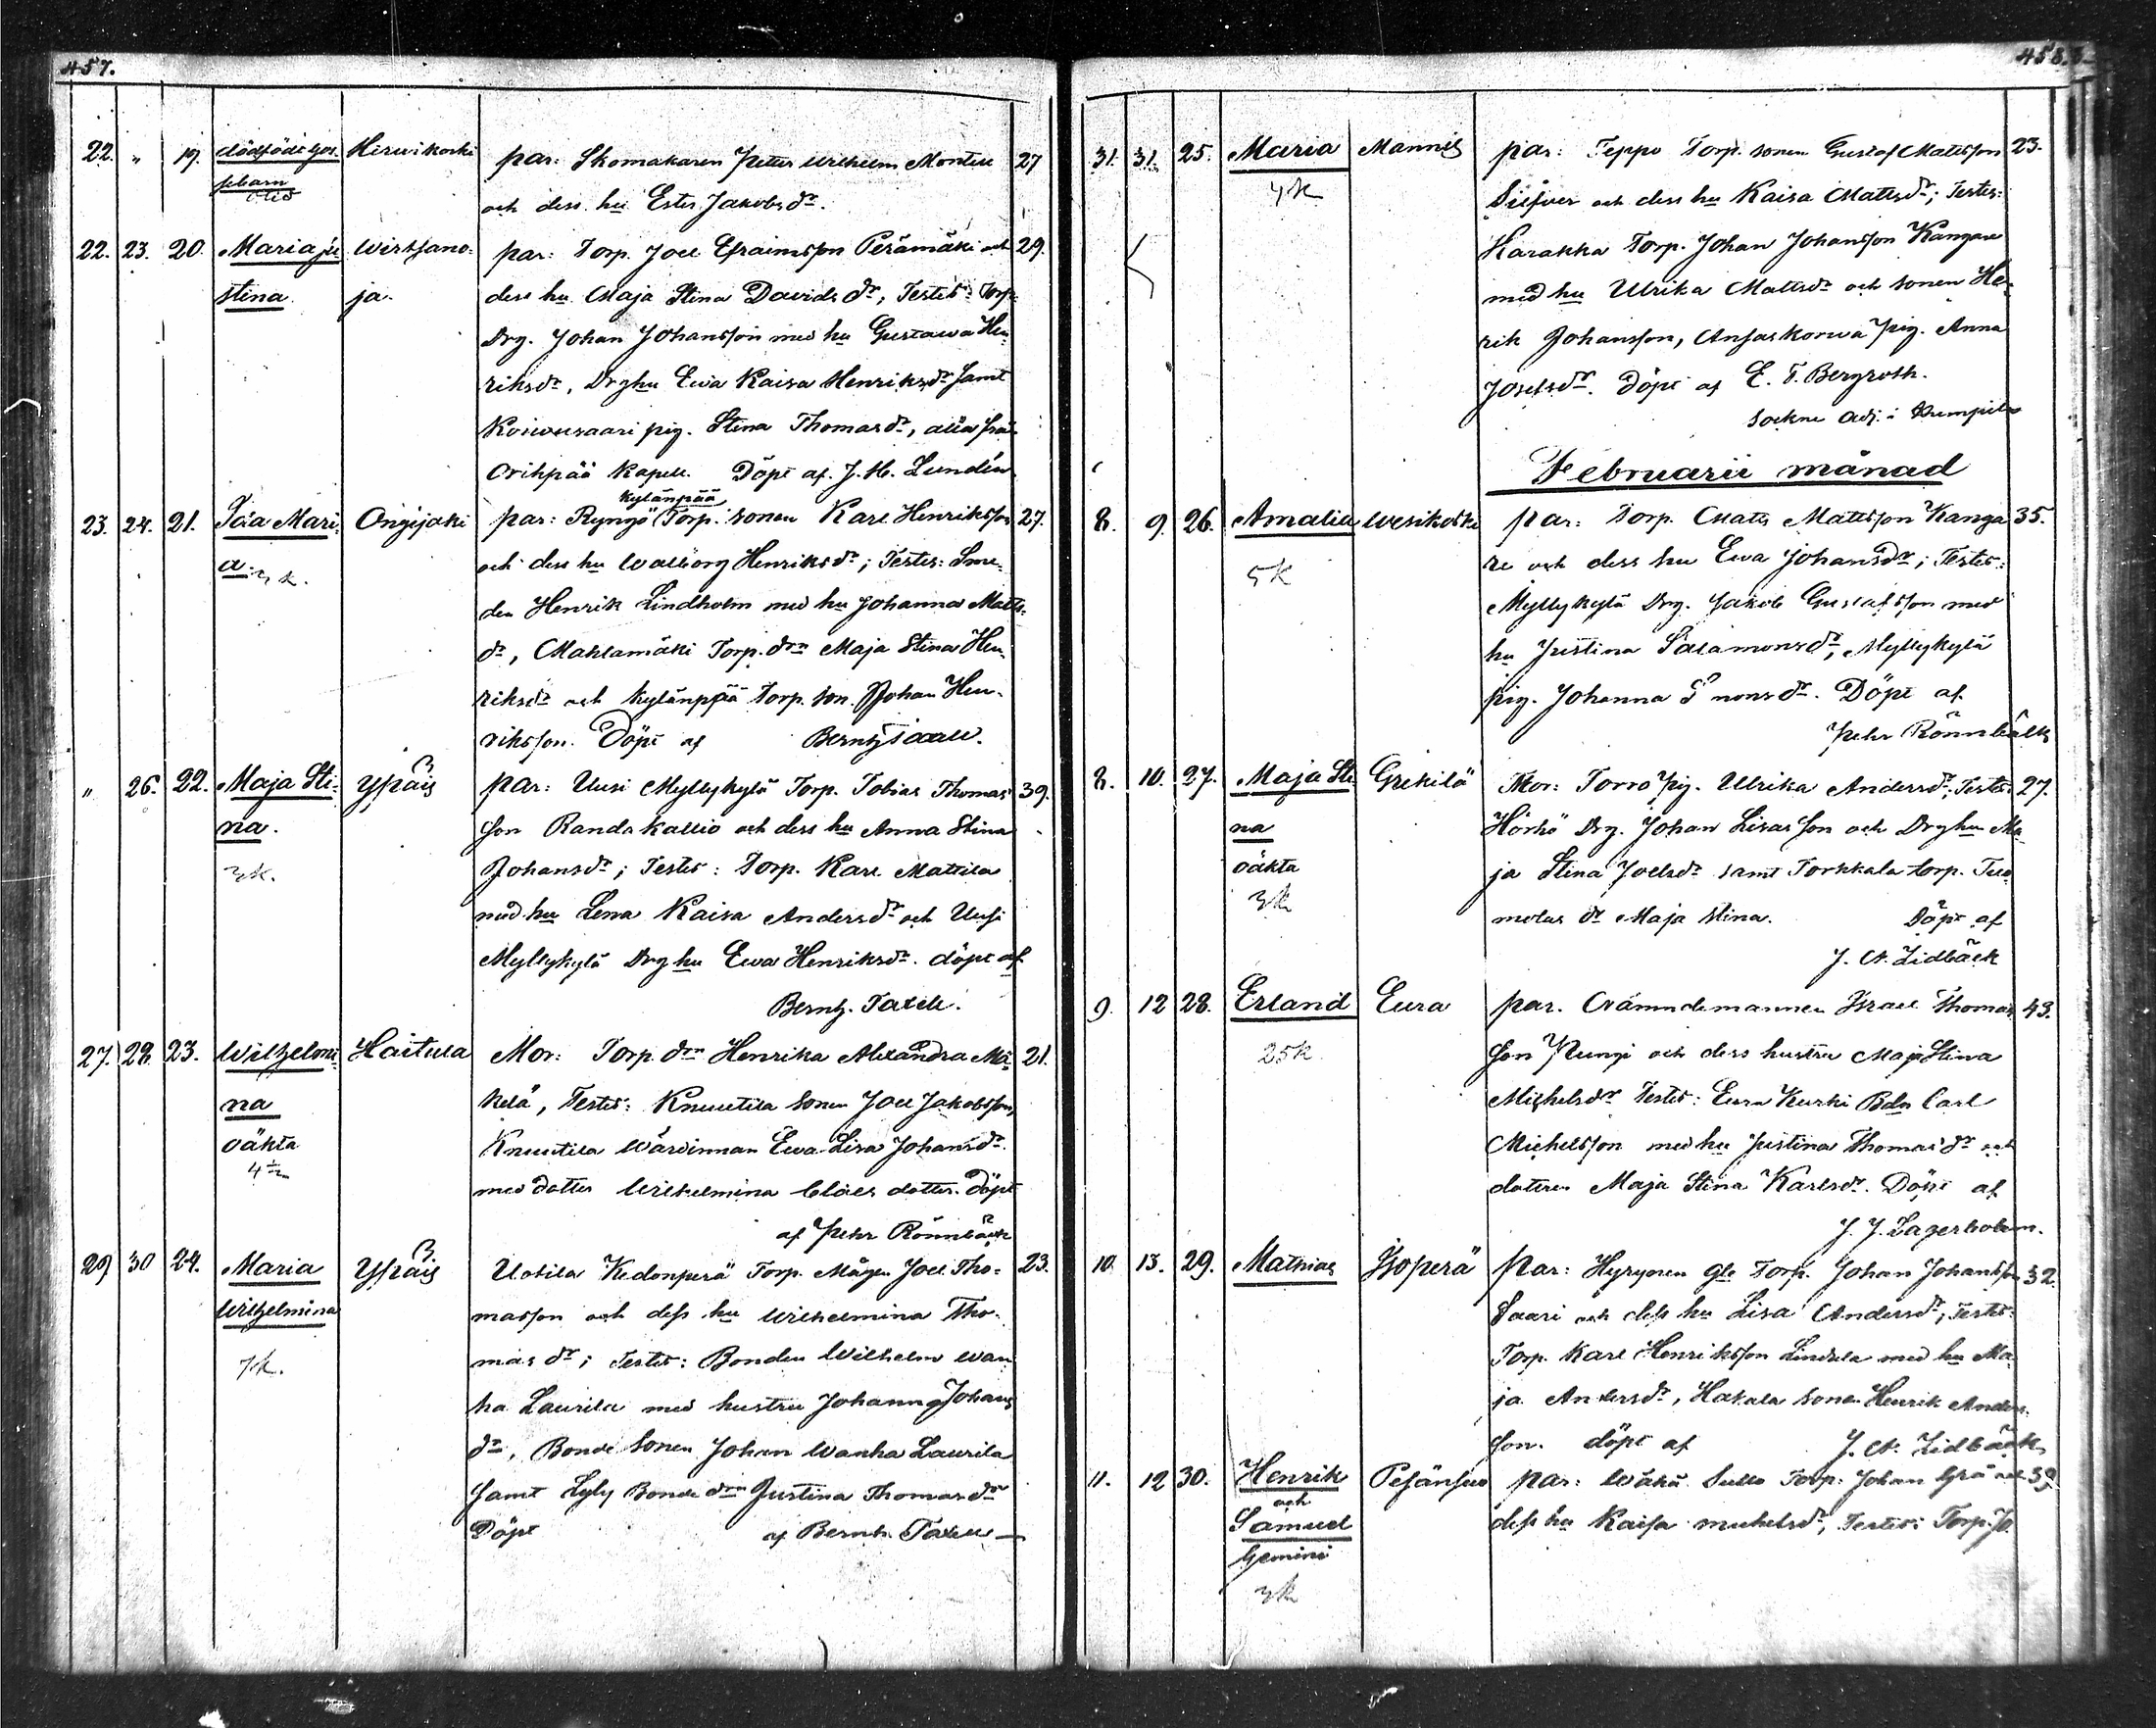 457.
22. " 19. dödfödt gos- Hirwikoski par: Skomakaren Peter Wilhelm Montin 27
sebarn och dess hu Ester Jakobsdr.
22. 23. 20. Maria ju Wirtsano- par: Torp. Joel Efraimsson Perämäki och 29.
stina ja. dess hu Maja Stina Davidsdr, Testes: Torp.
Drg. Johan Johansson med hu Gustawa Hen-
riksdr, Drghu Ewa Kaisa Henriksdr samt
Koiwusaari pig. Stina Thomasdr, alla från
Oripää Kapell. Döpt af J. H. Lundén
kylänpää
23. 24. 21. Ida Mari- Orisjoki par: Ryngö Torp. sonen Karl Henriksson 27.
a. 3 k. och dess hu Walborg Henriksdr; Testes: Sme-
den Henrik Lindholm med hu Johanna Matts-
dr, Mahlamäki Torp. drn Maja Stina Hen-
riksdr och Kylänpää Torp. son. Johan Hen-
riksson. Döpt af Bernh. Taxell.
" 26. 22. Maja Sti- Ypäis par: Uusi Myllykylä Torp. Tobias Thomas- 39.
na. son Randakallio och dess hu Anna Stina
3k. Johansdr; Testes: Torp. Karl Mattila
med hu Lena Kaisa Andersdr och Uusi
Myllykylä Drg hu Ewa Henriksdr. döpt af
Bernh. Taxell.
27. 28. 23. Wilhelmi- Haitula Mor: Torp. drn Henrika Alexandra Mä- 21.
na kelä, Testes: Knuutila sonen Joel Jakobsson,
oäkta Knuutila Wärdinnan Ewa Lisa Johansdr.
med dotter Wilhelmina Claes dotter. Döpt
af Pehr Rönnbäck
29 30 24. Maria Ypäis Uotila Kedonperä Torp. Mågen Joel Tho- 23.
Wilhelmina masson och dess hu Wilhelmina Tho-
7k. masdr; Testes: Bonden Wilhelm Wan
ha Laurila med hustru Johanna Johans
dr, Bonde sonen Johan Wanha Laurila
samt Lyly Bonde drn Justina Thomasdr
Döpt af Bernh. Taxell
458.
31. 31. 25. Maria Mannis par: Teppo Torp. sonen Gustaf Mattsson 23.
4k Silfver och dess hu Kaisa Mattsdr; Testes:
Harakka Torp. Johan Johansson Kangare
med hu Ulrika Mattsdr och sonen Hen-
rik Johansson, Ansaskorwa pig. Anna
Josefsdr. Döpt af E. T. Bergroth.
sockne Adj: i
Februarii månad
8. 9. 26. Amalia Wesikoski par: Torp. Matts Mattsson Kanga 35.
5k re och dess hu Ewa Johansdr; Testes:
Myllykylä Drg. Jakob Gustafsson med
hu Justina Salamonsdr, Myllykylä
pig. Johanna Döpt af
Pehr Rönnbäck
8. 10. 27. Maja Sti- Grekilä Mor: Torro pig. Ulrika Andersdr; Testes: 27.
na Hörkö Drg. Johan Lisasson och Drghu Ma-
oäkta ja Stina Joelsdr samt Torkkala torp. Tuo-
3k molas dr Maja Stina. Döpt af
J. A. Lidbäck
9. 12 28. Erland Eura par. Nämndemannen Israel Thomas 43.
25k son Pungi och dess hustru Maja Stina
Michelsdr Testes: Eura Kurki Bdn Carl
Michelsson med hu Justina Thomasdr och
dottren Maja Stina Karlsdr. Döpt af
J. J. Lagerholm.
10. 13. 29. Mathias Isoperä par: Hyrynen Gle Torp. Johan Johansson 32.
Saari och dess hu Lisa Andersdr; Testes:
Torp. Karl Henriksson Lindula med hu Ma
ja Andersdr, Hakala sonen Henrik Anders-
son. döpt af J. A. Lidbäck
11. 12 30. Henrik Pesänsuo par: Wähä Sullo Torp. Johan Grä och 39.
och dess hu Kaisa Michelsdr, Testes: Torp.
Samuel
Gemini
3k